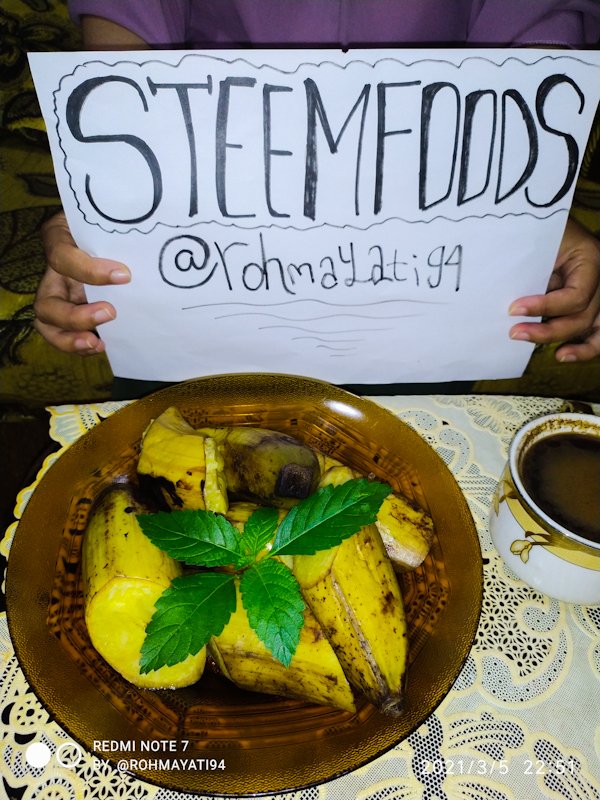 STEEMFOODS
@rohmayati94
REDMI NOTE 7
BY @ROHMAYATI94
2021/3/5 22:51